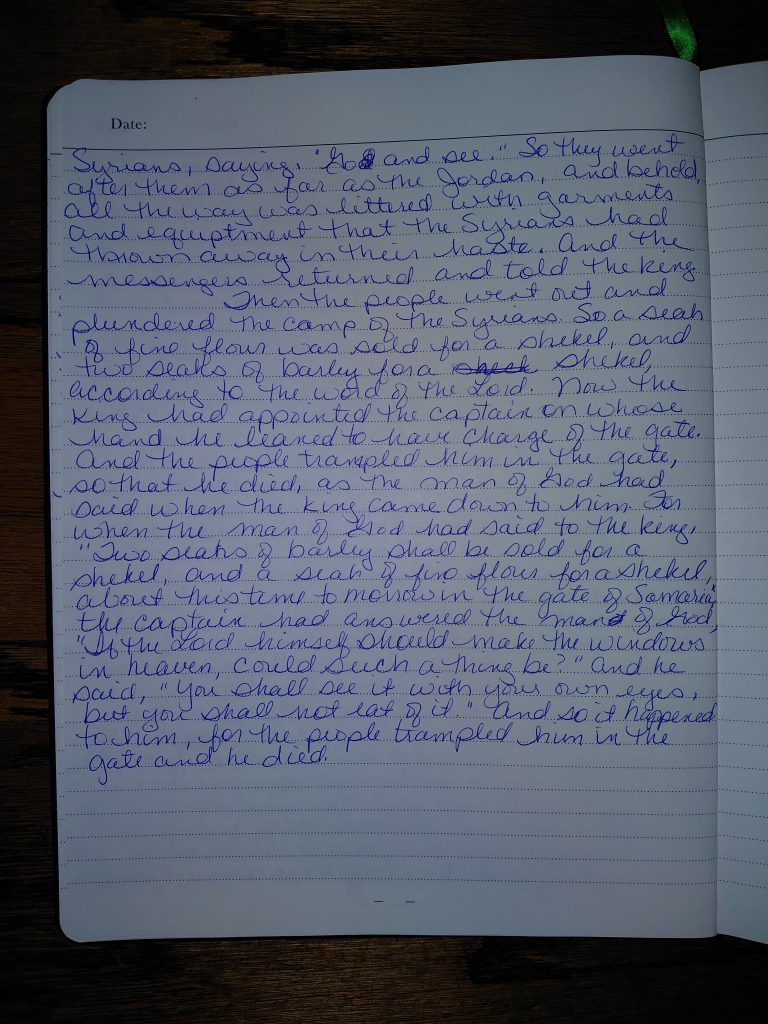 Date:
Syrians, saying, "Go and see." So they went
after them as far as the Jordan, and behold,
all the way was littered with garments
and equiptment that the Syrians had
thrown away in their haste. And the
messengers returned and told the king.
Then the people went out and
plundered the camp of the Syrians. So a seah
of fine flour was sold for a shekel, and
two seahs of barley for a sheek shekel,
according to the word of the Lord. Now the
king had appointed the captain on whose
hand he leaned to have charge of the gate.
And the people trampled him in the gate,
so that he died, as the man of God had
said when the king came down to him. For
when the man of God had said to the king,
"Two seahs of barley shall be sold for a
shekel, and a seah of fine flour for a shekel,
about this time tomorrow in the gate of Samaria,"
the captain had answered the man of God,
"If the Lord himself should make the windows
in heaven, could such a thing be?" And he
said, "You shall see it with your own eyes,
but you shall not eat of it." And so it happened
to him, for the people trampled him in the
gate and he died.